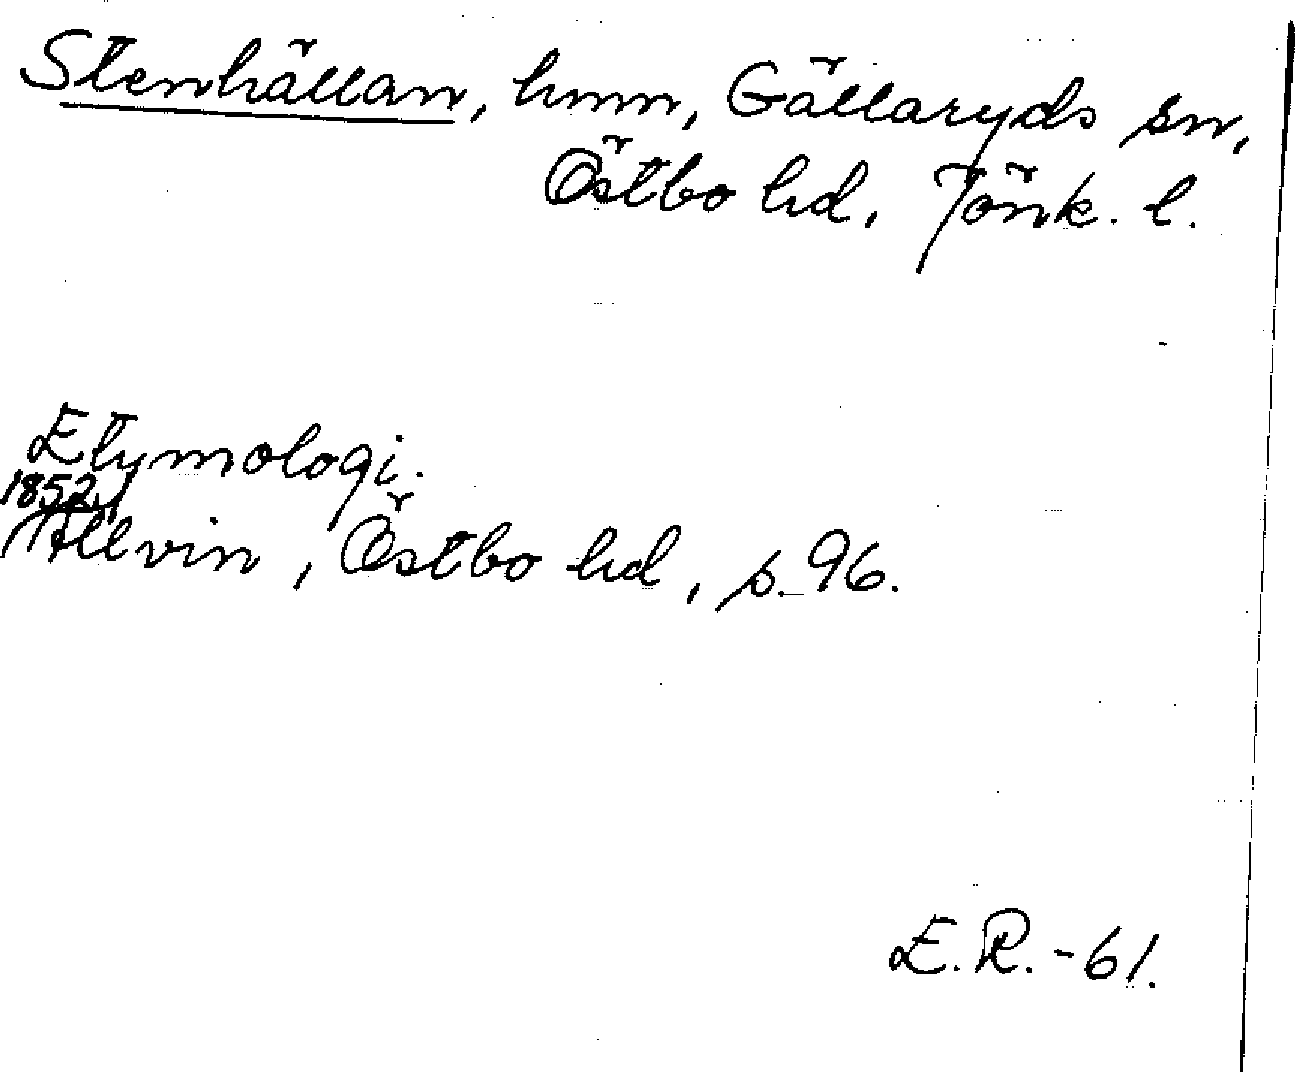 Stenhällan, hmn, Gällaryds sn,
Östbo hd, Jönk. l.
Etymologi.
1852
Allvin, Östbo hd, s. 96.
E.R. -61.